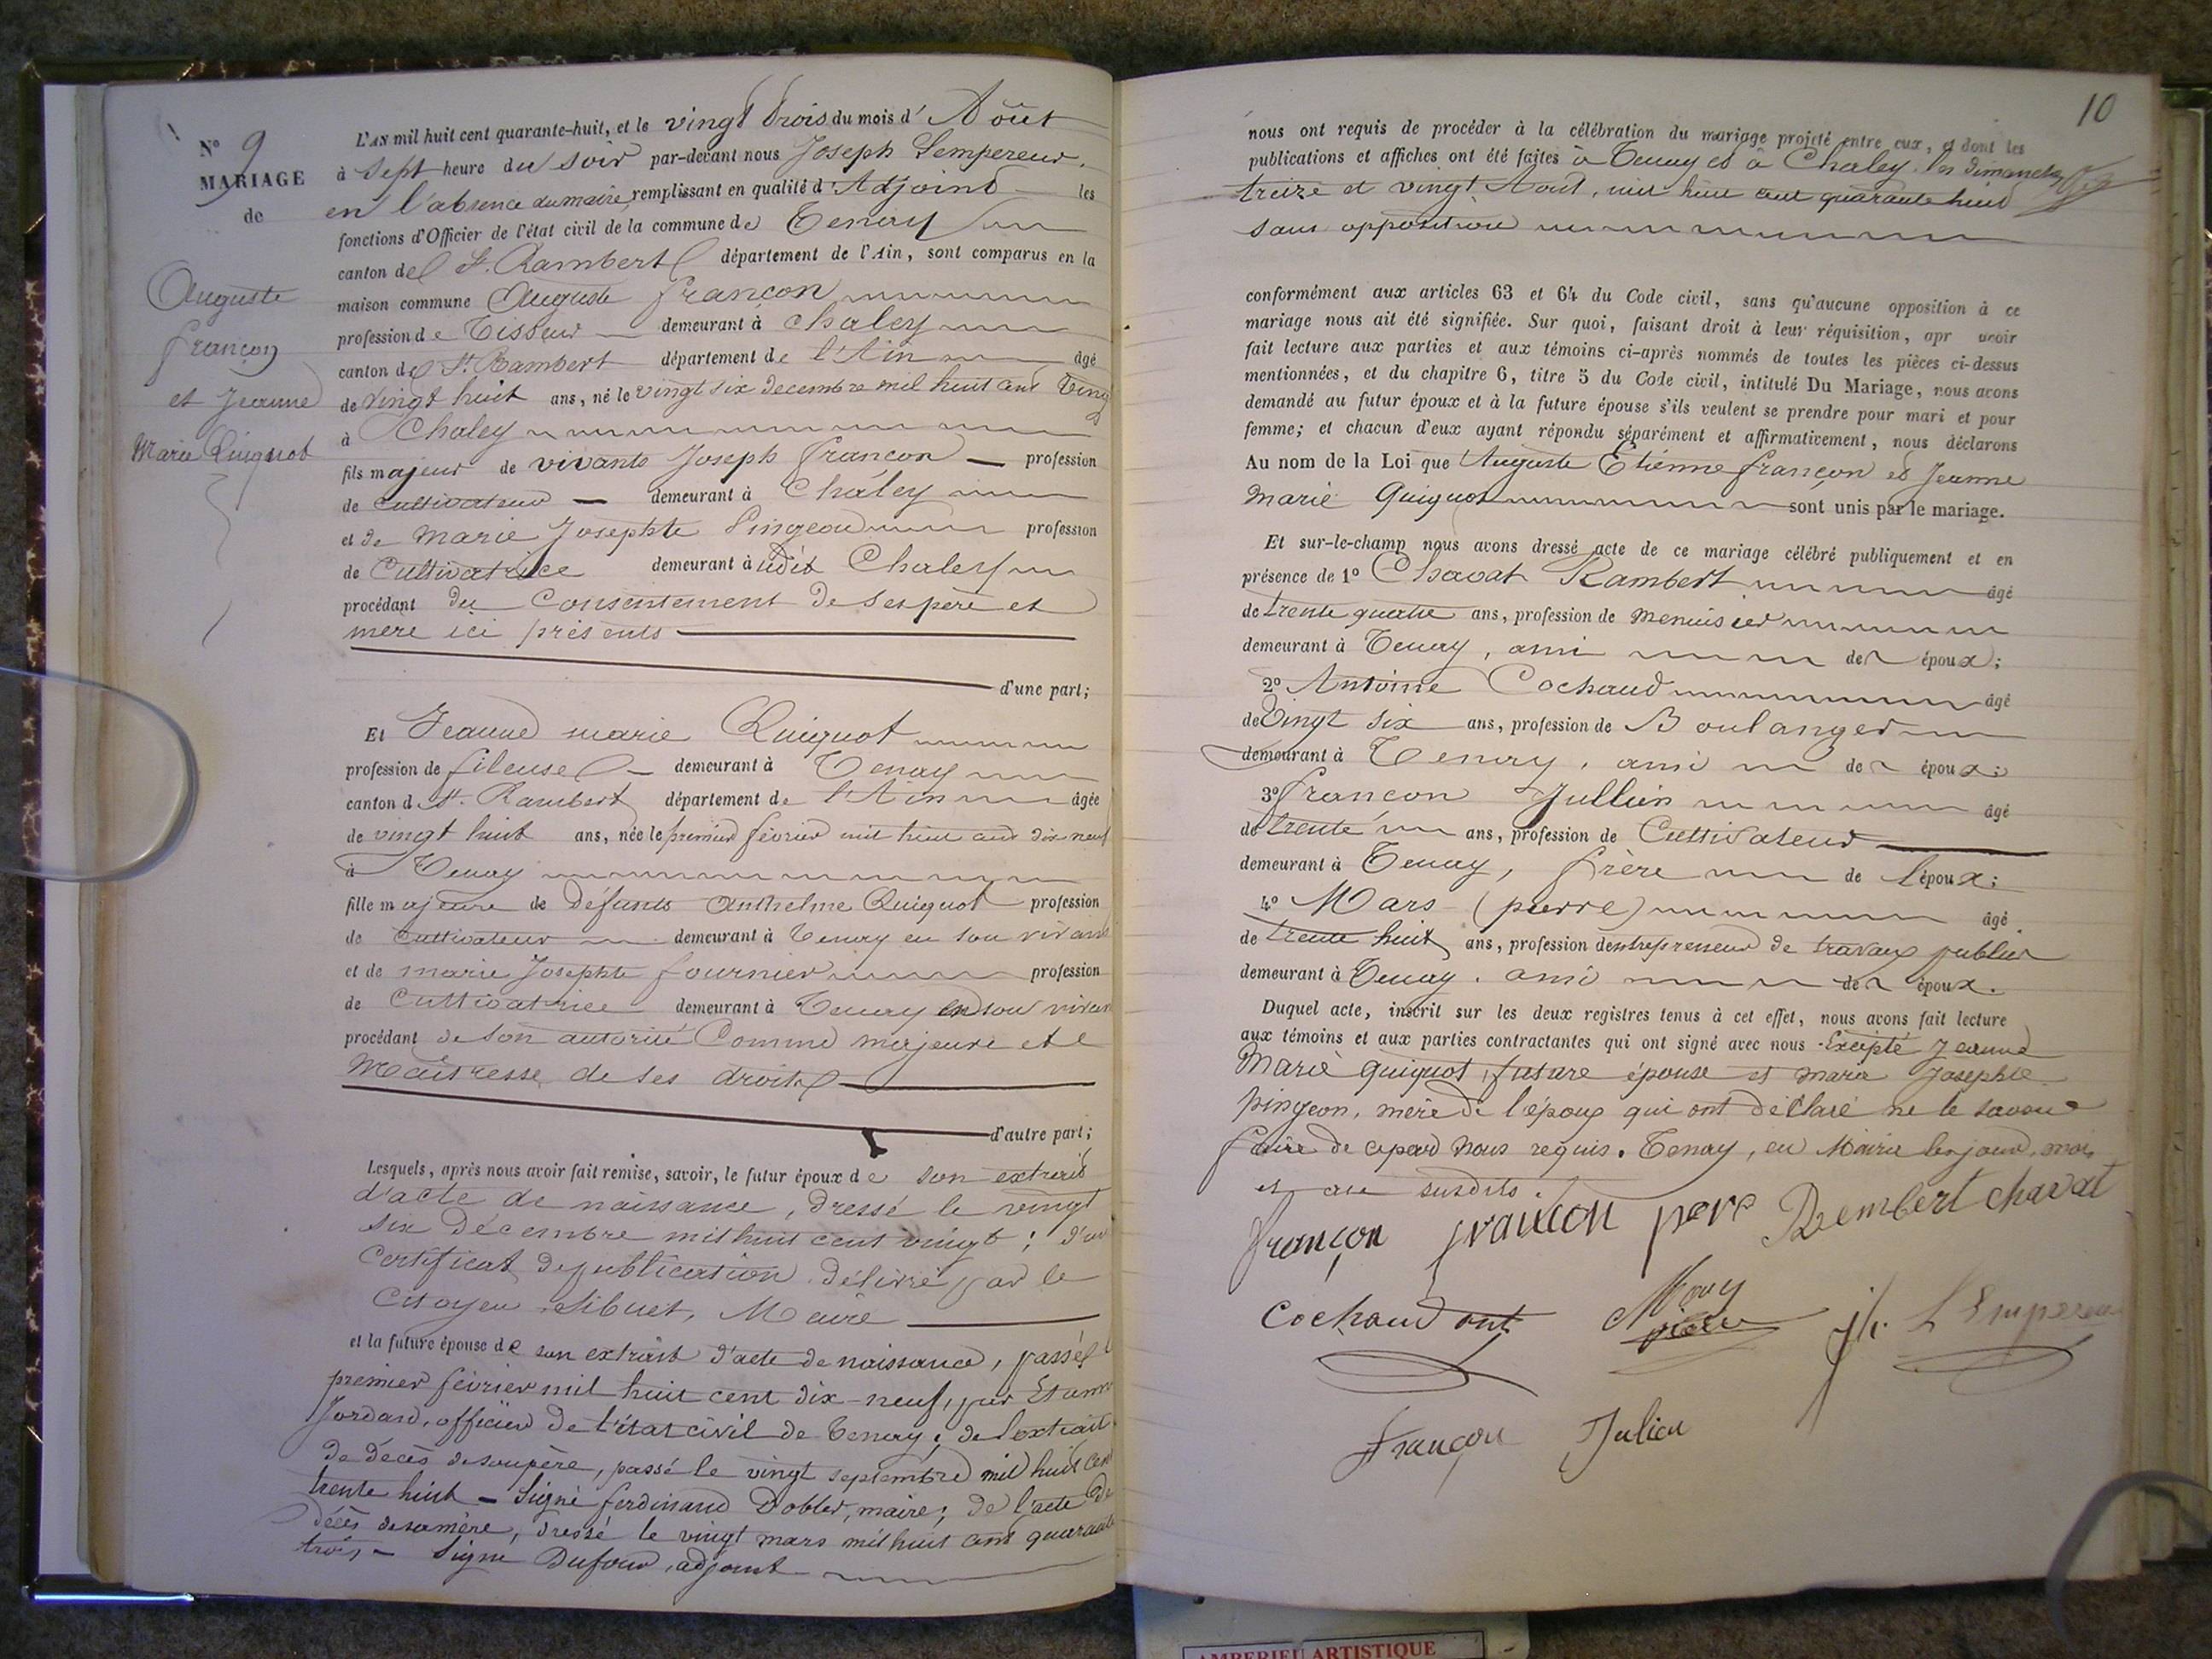 N° 9
MARIAGE
de
Auguste
françon
et Jeanne
Marie Quignot
L'AN mil huit cent quarante-huit, et le vingt trois du mois d'Août
à sept heure du soir par-devant nous Joseph Lempereur,
en l'absence du maire, remplissant en qualité d'Adjoint les
fonctions d'Officier de l'état civil de la commune de Tenay
canton de St. Rambert département de l'Ain, sont comparus en la
maison commune Auguste françon
profession de Tisseur demeurant à Chaley
canton de St. Rambert département de l'Ain âgé
de vingt huit ans, né le vingt six decembre mil huit cent vingt
à Chaley
fils majeur de vivants Joseph françon profession
de cultivateur demeurant à Chaley
et de Marie Josephte Pingeon profession
de Cultivatrice demeurant à udit Chaley
procédant du Consentement de ses père et
mere ici présents
d'une part;
Et Jeanne marie Quignot
profession de fileuse demeurant à Tenay
canton de St. Rambert département de l'Ain âgée
de vingt huit ans, née le premier février mil huit cent dix neuf
à Tenay
fille majeure de défunts Anthelme Quignot profession
de Cultivateur demeurant à Tenay en son vivant
et de marie Josephte fournier profession
de Cultivatrice demeurant à Tenay en son vivant
procédant de son autorité Comme majeure et
Maitresse de ses droits
d'autre part;
Lesquels, après nous avoir fait remise, savoir, le futur époux de son extrait
d'acte de naissance, dressé le vingt
six Décembre mil huit cent vingt; d'un
Certificat de publication délivré par le
Citoyen Sibuet, Maire
et la future épouse de son extrait d'acte de naissance, passé le
premier février mil huit cent dix-neuf, par
Jordan, officier de l'état civil de Tenay; de l'extrait
de décès de son père, passé le vingt septembre mil huit cent
trente huit - Signé ferdinand Dobler, maire; de l'acte de
décès de sa mère, dressé le vingt mars mil huit cent quarante
trois, - Signé Dufour, adjoint
10
nous ont requis de procéder à la célébration du mariage projeté entre eux, et dont les
publications et affiches ont été faites à Tenay et à Chaley les dimanches
treize et vingt Août, mil huit cent quarante huit
sans opposition
conformément aux articles 63 et 64 du Code civil, sans qu'aucune opposition à ce
mariage nous ait été signifiée. Sur quoi, faisant droit à leur réquisition, apr avoir
fait lecture aux parties et aux témoins ci-après nommés de toutes les pièces ci-dessus
mentionnées, et du chapitre 6, titre 5 du Code civil, intitulé Du Mariage, nous avons
demandé au futur époux et à la future épouse s'ils veulent se prendre pour mari et pour
femme; et chacun d'eux ayant répondu séparément et affirmativement, nous déclarons
Au nom de la Loi que Auguste Etienne françon et Jeanne
Marie Quignot sont unis par le mariage.
Et sur-le-champ nous avons dressé acte de ce mariage célébré publiquement et en
présence de 1° Chavat Rambert âgé
de trente quatre ans, profession de menuisier
demeurant à Tenay, ami de époux;
2° Antoine Cochaud âgé
de Vingt six ans, profession de Boulanger
demeurant à Tenay, ami de époux;
3° françon Jullien âgé
de trente ans, profession de Cultivateur
demeurant à Tenay, frère de l'époux;
4° Mars (pierre) âgé
de trente huit ans, profession d'entrepreneur de travaux publics
demeurant à Tenay. ami de époux.
Duquel acte, inscrit sur les deux registres tenus à cet effet, nous avons fait lecture
aux témoins et aux parties contractantes qui ont signé avec nous Excepté Jeanne
Marie Quignot, future épouse et Marie Josephte
pingeon, mère de l'époux qui ont déclaré ne le savoir
faire de ce par nous requis. Tenay, en Mairie les jour, mois
et an susdits.
françon françon pere Rembert chavat
Cochaud ant Mars pierre jh. LEmpereur
françon Julien
AMBERIEU ARTISTIQUE